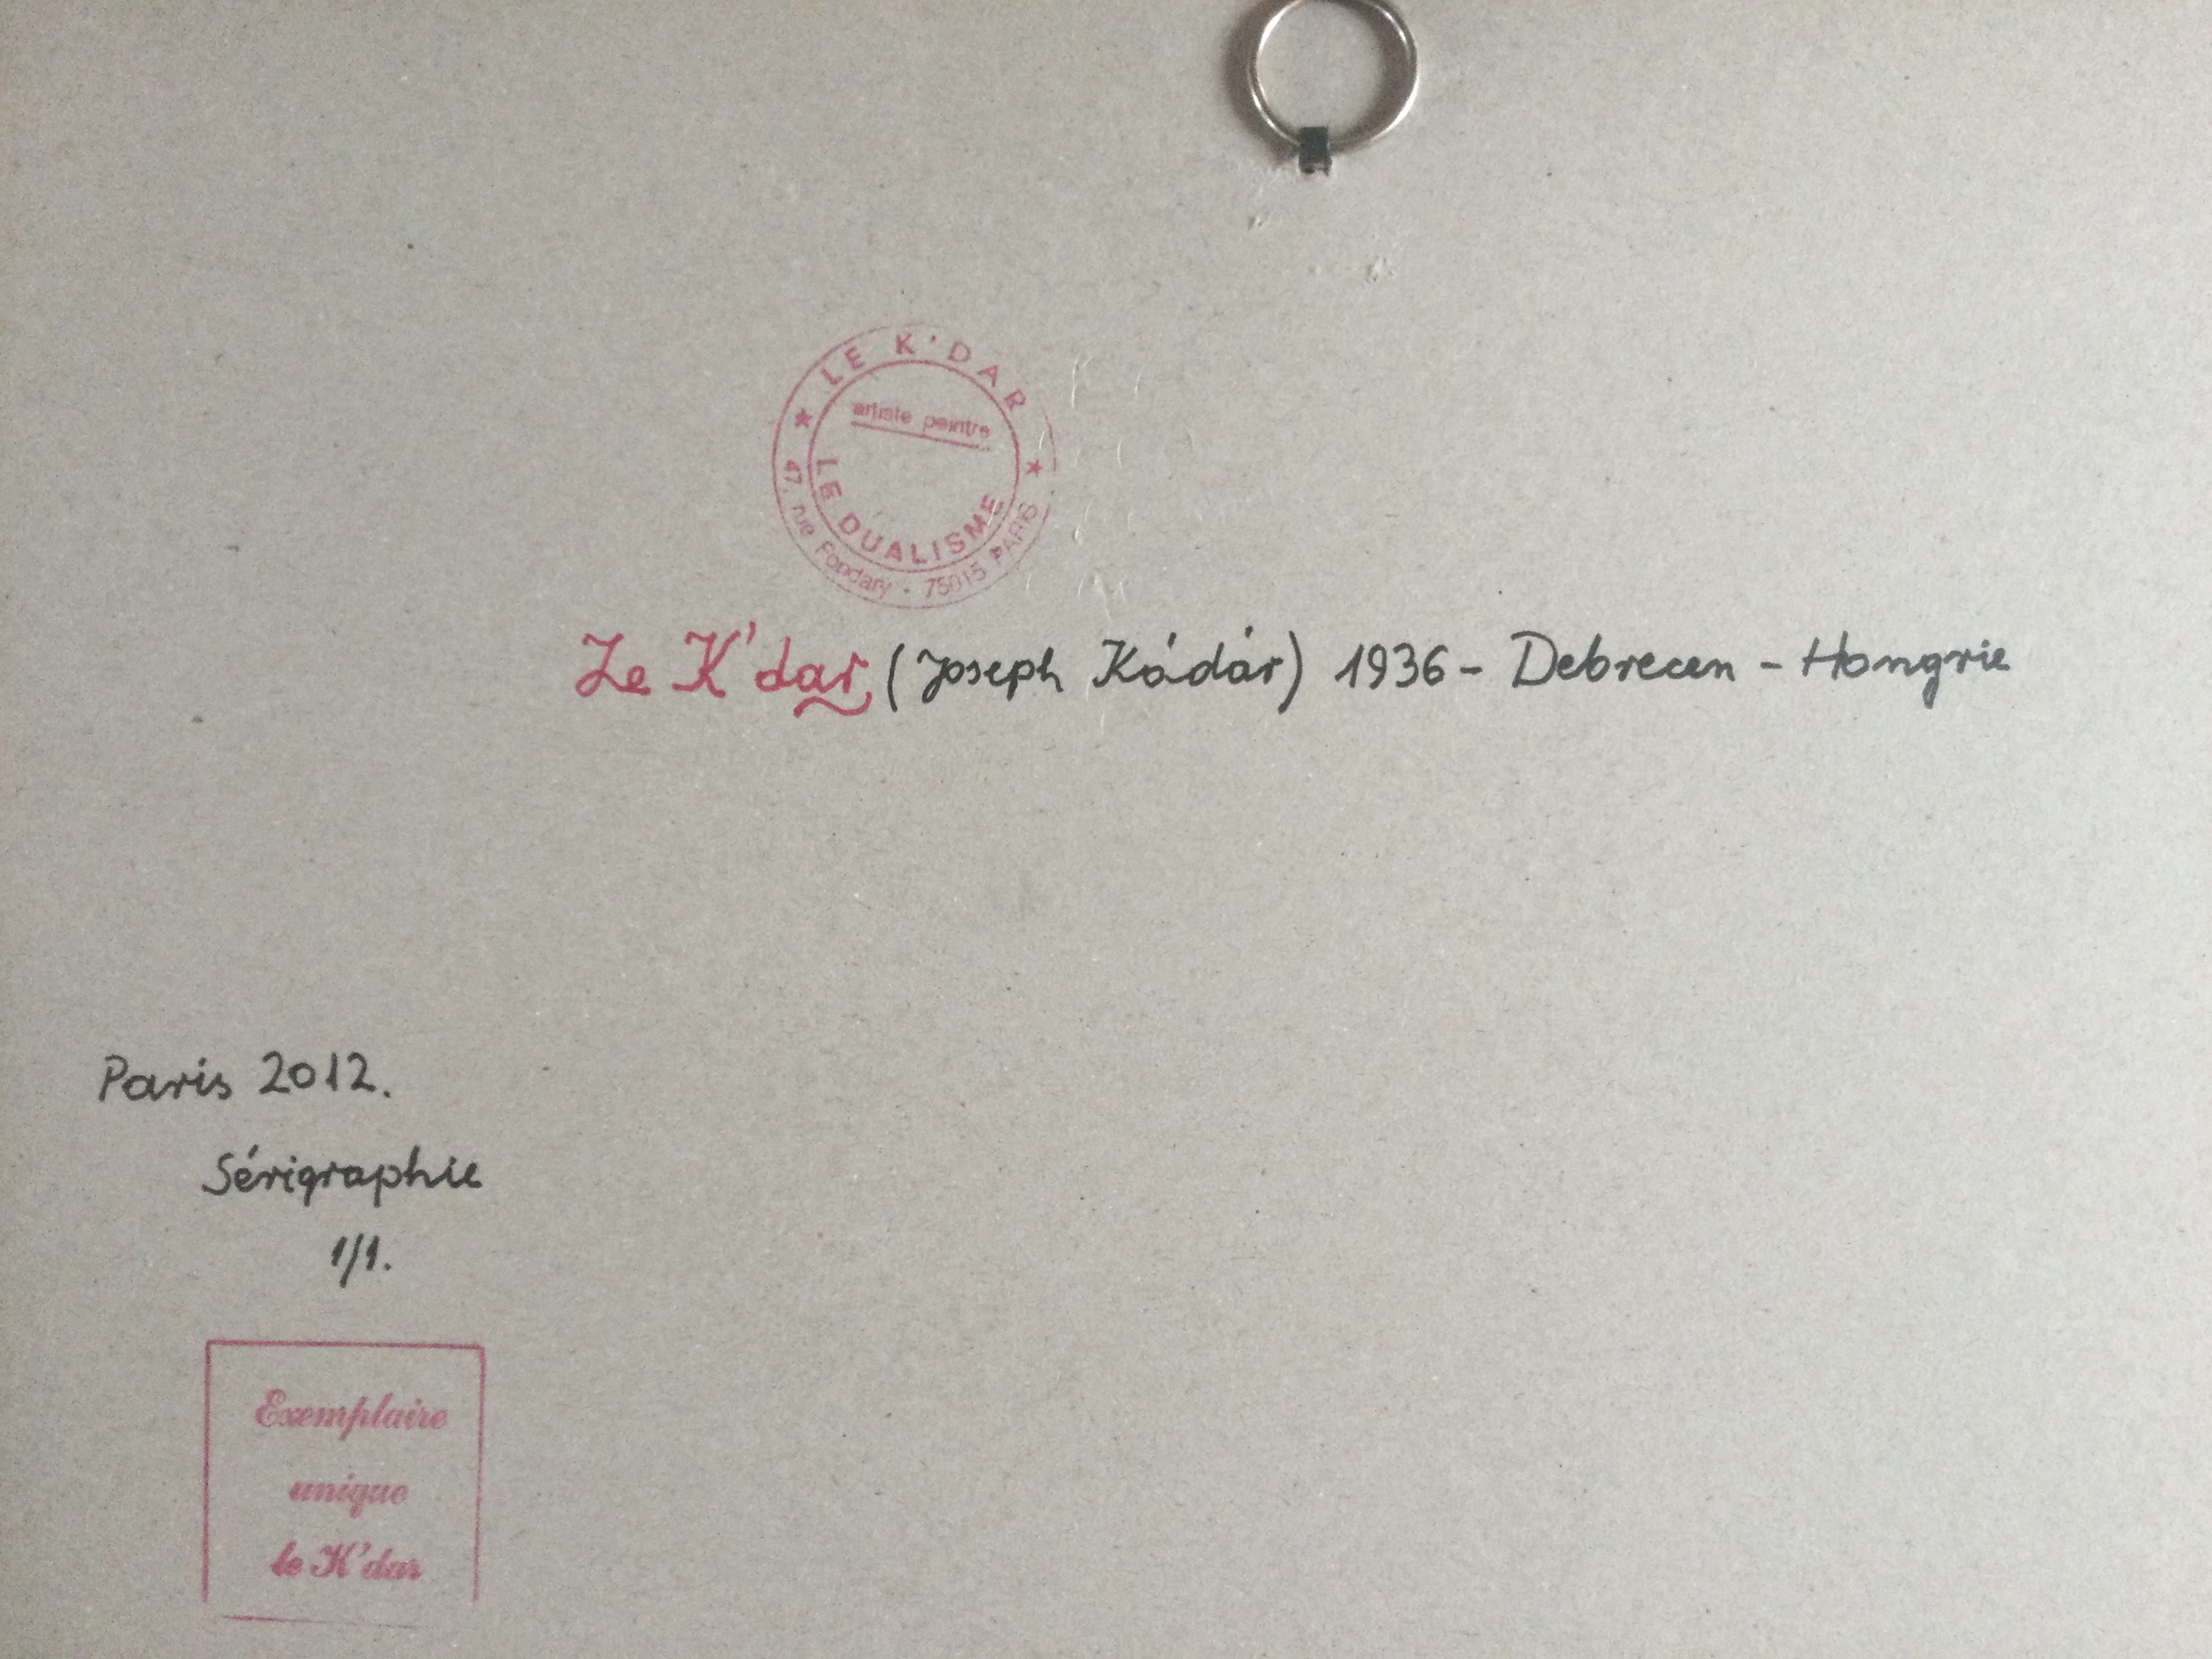 ★ LE K'DAR ★
artiste peintre
LE DUALISME
47, rue Fondary - 75015 PARIS
Le K'dar (Joseph Kádár) 1936 - Debrecen - Hongrie
Paris 2012.
Sérigraphie
1/1.
Exemplaire
unique
le K'dar